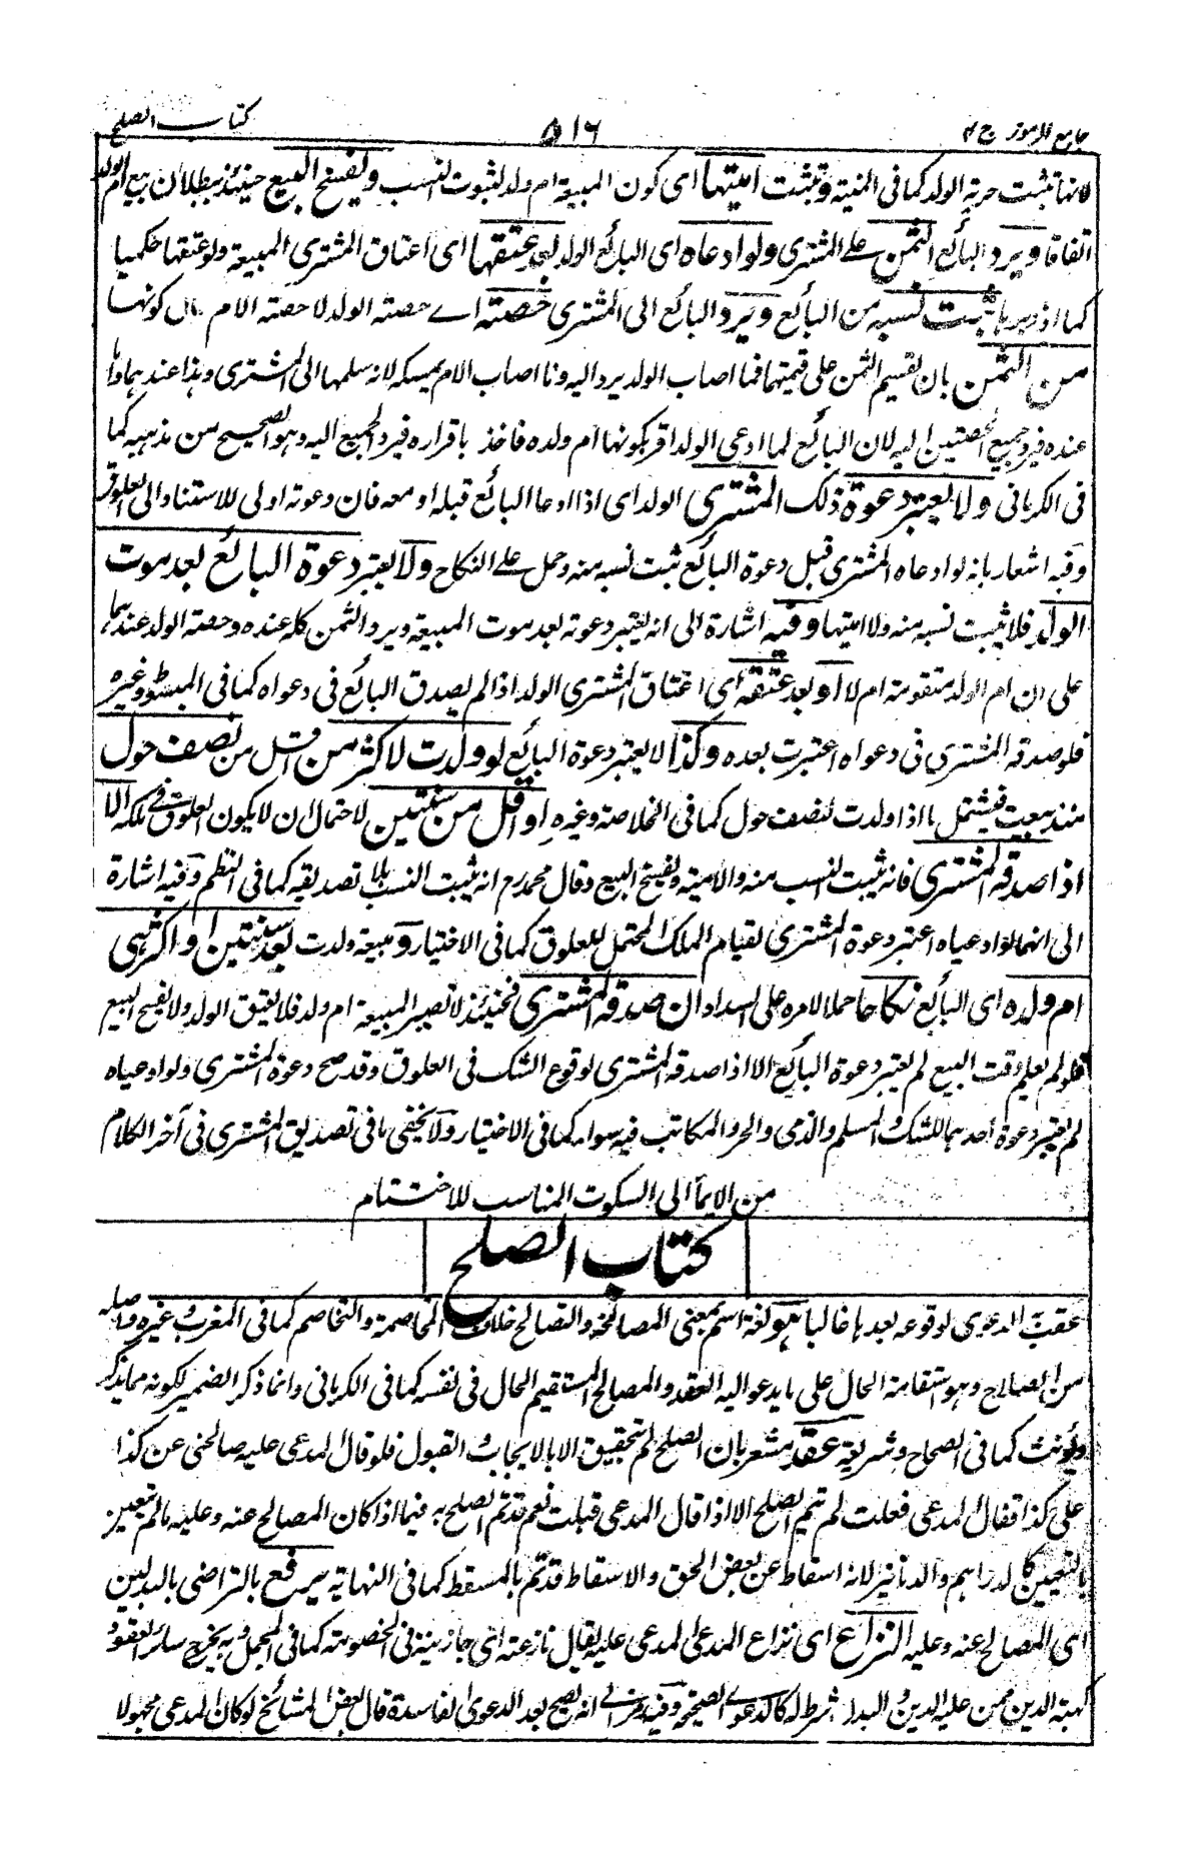 جامع الرموز ج ٢ ٥١٦ كتاب الصلح
لانها تثبت حرية الولد كما فى المنية وتثبت اميتها اى كون المبيعة ام ولد لثبوت النسب ويفسخ البيع حينئذ لبطلان بيع ام الولد
اتفاقا ويرد البائع الثمن على المشترى ولو ادعاه اى البائع الولد بعد عتقها اى اعتاق المشترى المبيعة ولو عتقها حكميا
كما اذ دبرها يثبت نسبه من البائع ويرد البائع الى المشترى حصته اے حصته الولد لا حصته الام كونها
من الثمن بان يقسم الثمن على قيمتهما فما اصاب الولد يرد اليه وما اصاب الام يمسكه لانه سلمها الى المشترى وهذا عندهما واما
عنده فيرد جميع الحصتين اليه لان البائع لما ادعى الولد اقر بكونها ام ولده فاخذ باقراره فيرد الجميع اليه وهو الصحيح من مذهبه كما
فى الكرمانى ولا يعتبر دعوة ذلك المشترى الولد اى اذا ادعا البائع قبله او معه فان دعوته اولى للاستناد الى العلوق
وفيه اشعار بانه لو ادعاه المشترى قبل دعوة البائع ثبت نسبه منه وحمل على النكاح ولا يعتبر دعوة البائع بعد موت
الولد فلا يثبت نسبه منه ولا اميتها وفيه اشارة الى انه يعتبر دعوته بعد موت المبيعة ويرد الثمن كله عنده وحصته الولد عندهما
على ان ام الولد متقومة ام لا او بعد عتقه اى اعتاق المشترى الولد اذا لم يصدق البائع فى دعواه كما فى المبسوط وغيره
فلو صدقه المشترى فى دعواه اعتبرت بعده وكذا لا يعتبر دعوة البائع لو ولدت لاكثر من اقل من نصف حول
منذ بيعت فيشتمل ما اذا ولدت لنصف حول كما فى الخلاصة وغيره او اقل من سنتين لاحتمال ان لا يكون العلوق فى ملكه الا
اذا صدقه المشترى فانه يثبت النسب منه والامية ويفسخ البيع وقال محمد رح انه يثبت النسب بلا تصديقه كما فى النظم وفيه اشارة
الى انهما لو ادعياه اعتبر دعوة المشترى لقيام الملك المحتمل للعلوق كما فى الاختيار ومبيعة ولدت بعد سنتين او اكثر هى
ام ولده اى البائع نكاحا حملا لامره على السداد ان صدقه المشترى فحينئذ لا تصير المبيعة ام ولد فلا يعتق الولد ولا يفسخ البيع
فلو لم يعلم وقت البيع لم يعتبر دعوة البائع الا اذا صدقه المشترى لوقوع الشك فى العلوق وقد صح دعوة المشترى ولو ادعياه
لم يعتبر دعوة احدهما للشك والمسلم والذمى والحر والمكاتب فيه سواء كما فى الاختيار ولا يخفى ما فى تصديق المشترى فى آخر الكلام
من الايماء الى السكوت المناسب للاختتام
كتاب الصلح
عقب الدعوى لوقوعه بعدها غالبا هو لغة اسم بمعنى المصالحة والتصالح خلاف المخاصمة والتخاصم كما فى المغرب وغيره واصله
من الصلاح وهو استقامة الحال على ما يدعو اليه العقد والمصالح المستقيم الحال فى نفسه كما فى الكرمانى وانما ذكر الضمير لكونه مما يذكر
ويؤنث كما فى الصحاح وشريعة عقد مشعر بان الصلح لم يتحقق الا بالايجاب والقبول فلو قال المدعى عليه صالحنى عن كذا
على كذا فقال المدعى فعلت لم يتم الصلح الا اذا قال المدعى قبلت نعم قد تم الصلح به فيما اذا كان المصالح عنه وعليه مالم يتعين
بالتعيين كالدراهم والدنانير لانه اسقاط عن بعض الحق والاسقاط قد تم بالمسقط كما فى النهاية يرفع بالتراضى بالبدلين
اى المصالح عنه وعليه النزاع اى نزاع المدعى المدعى عليه يقال نازعته اى جاذبته فى الخصومة كما فى المجمل وبه يخرج سائر العقود
كهبة الدين ممن عليه الدين و شرط له كالدعوے الصحيحة وفيه رمز الے انه يصح بعد الدعوى الفاسدة قال بعض المشائخ لو كان المدعى مجهولا